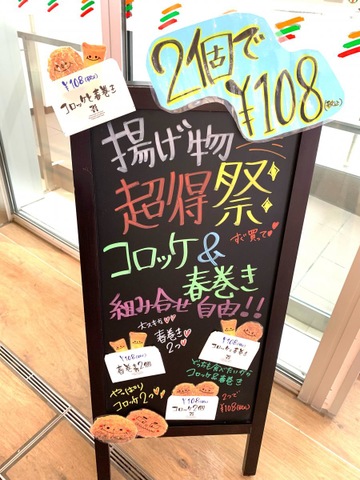 2個で
¥108(税込)
¥108(税込)
コロッケと春巻き
揚げ物
超得祭
すぐ買って
コロッケ&
春巻き
組み合せ自由!!
大スキな
春巻き
2つ
¥108(税込)
春巻2個
¥108(税込)
コロッケと春巻き
どっちも食べたいから
コロッケ&春巻き
やっぱり
コロッケ2つ
¥108(税込)
コロッケ2個
2つで
¥108(税込)